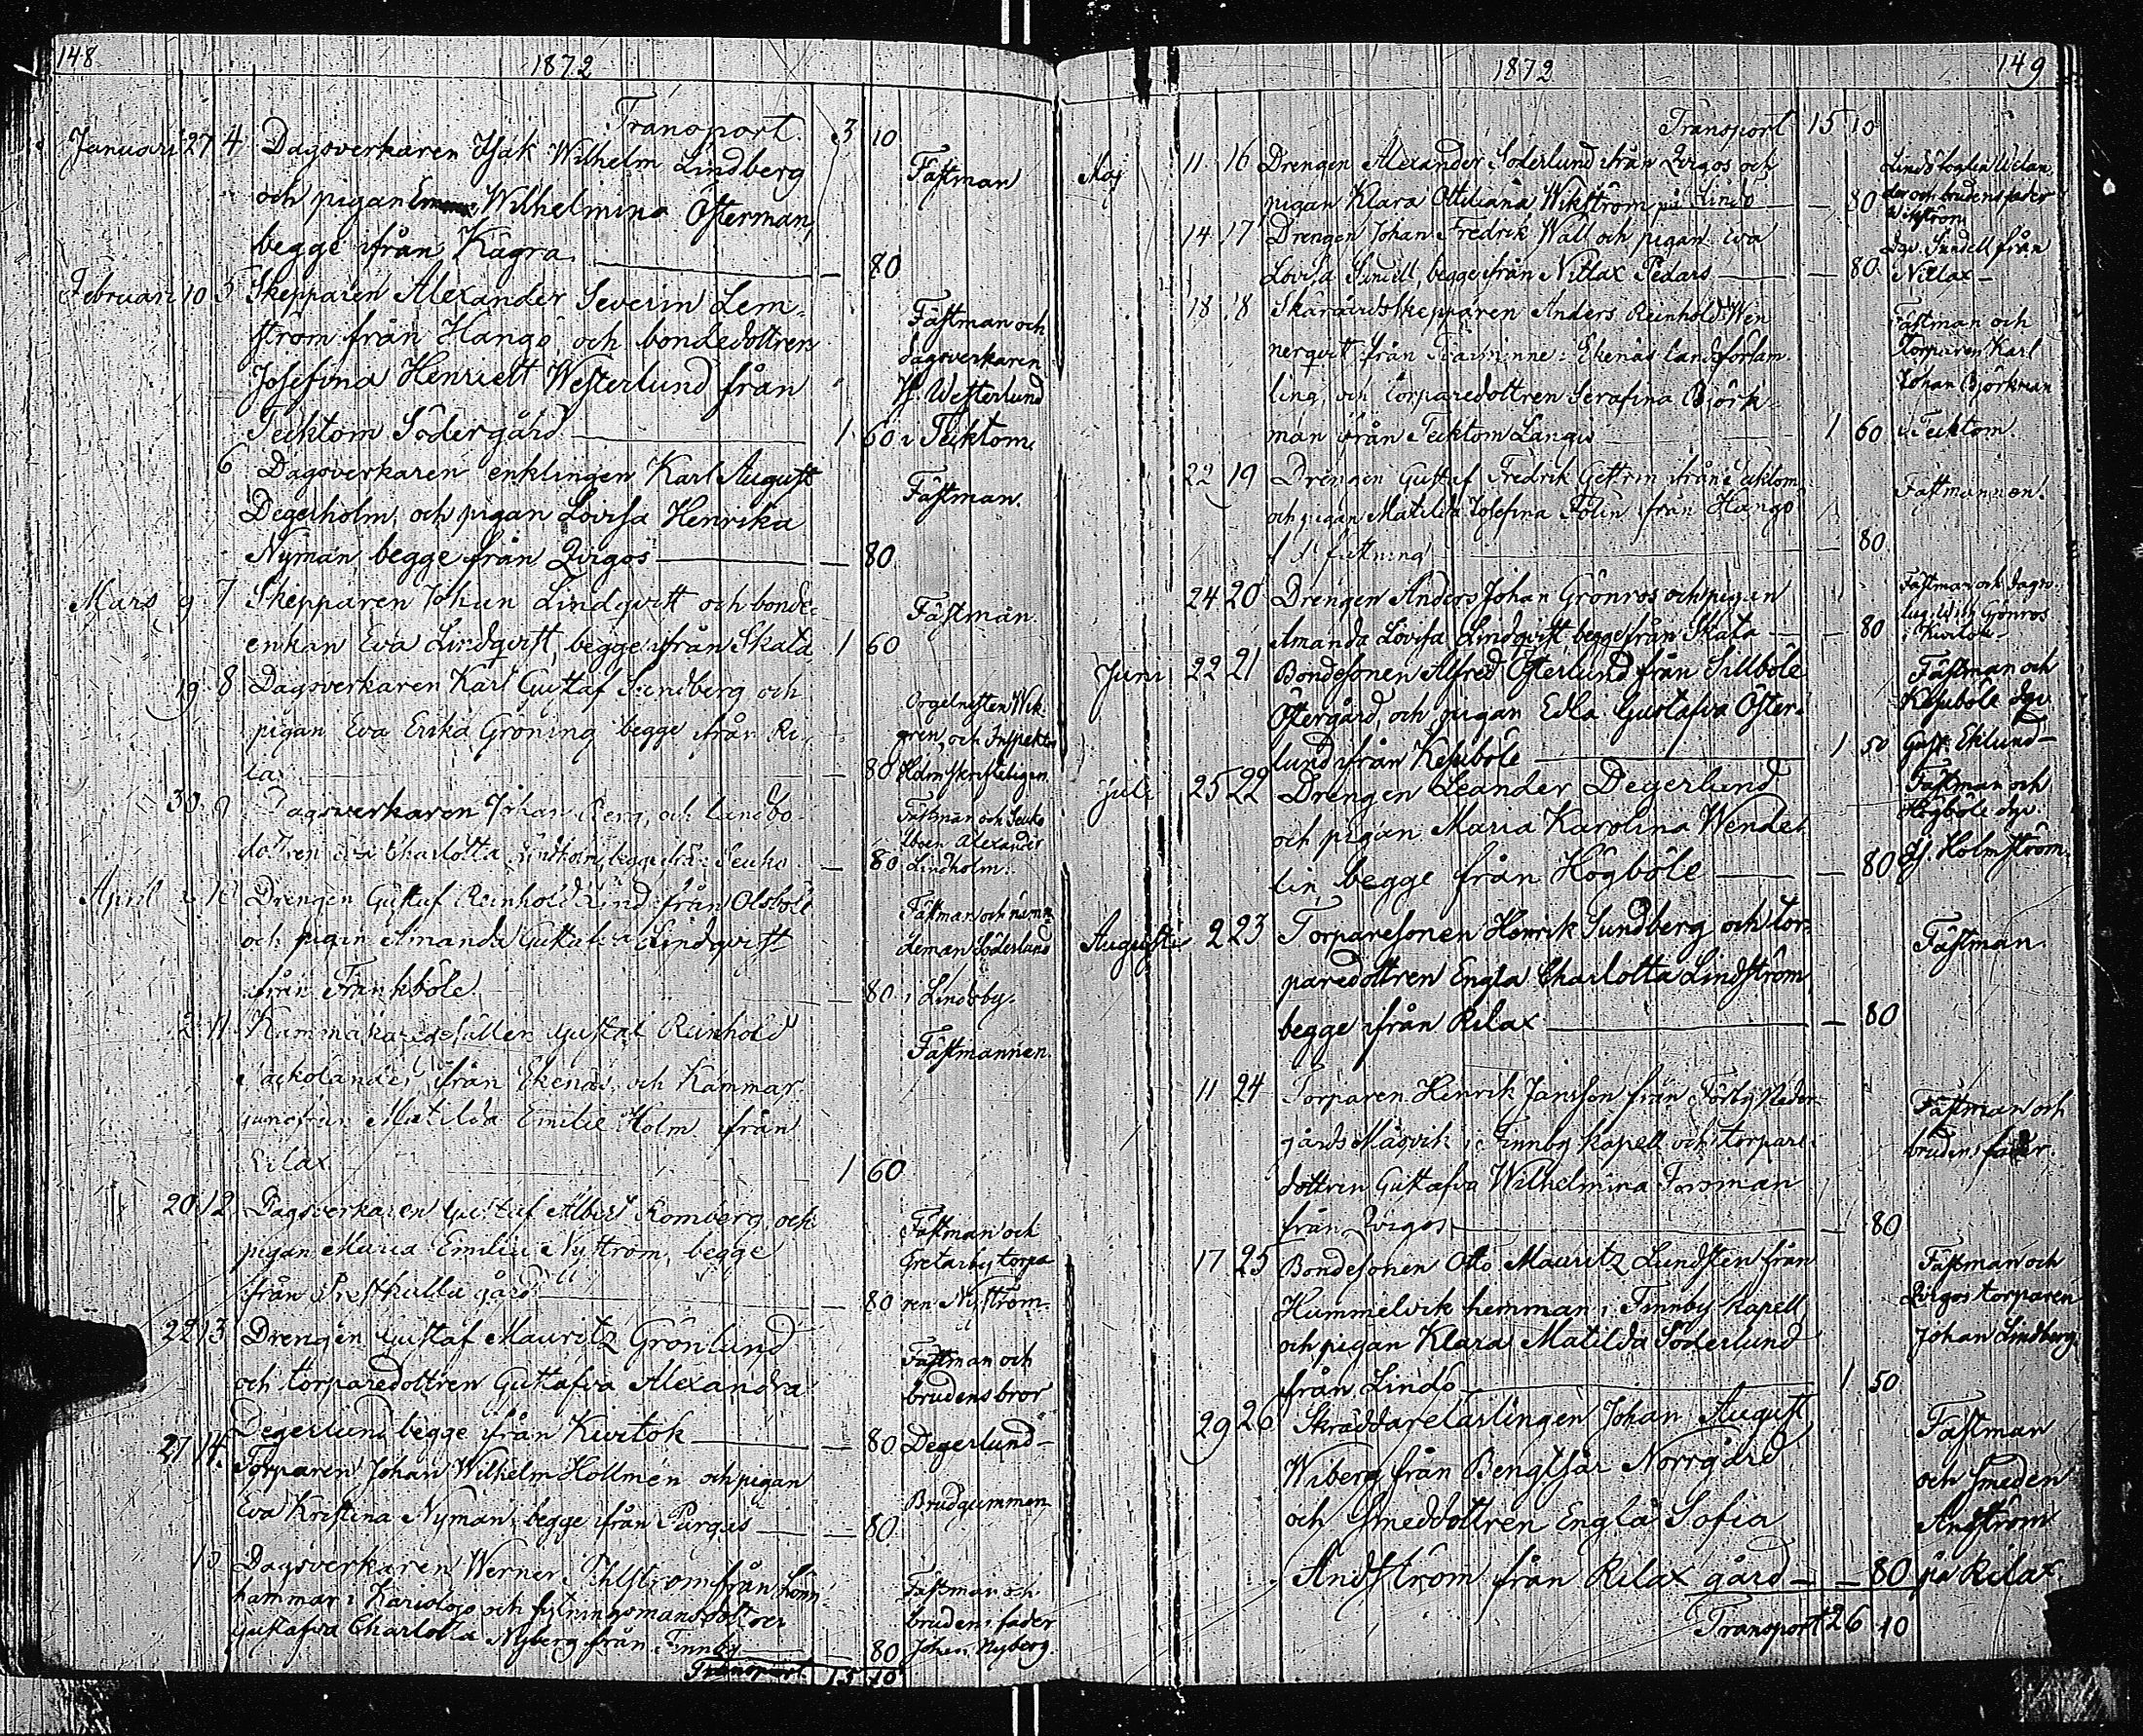 148
1872
Transport 3 10
Januari 27 4 Dagsverkaren Isak Wilhelm Lindberg
och pigan Wilhelmina Österman,
begge ifrån Kagra — 80
Fästman
Februari 10 5 Skepparen Alexander Severin Lem-
ström från Hangö och bondedottren
Josefina Henriett Westerlund från
Tecktom Södergård 1 60
Fästman och
dagsverkaren
W. Westerlund
i Tecktom.
6 Dagsverkaren enklingen Karl August
Degerholm, och pigan Lovisa Henrika
Nyman begge från Qvigos — 80
Fästman.
Mars 9 7 Skepparen Johan Lindqvist och bonde-
enkan Eva Lindqvist, begge ifrån Skata 1 60
Fästman.
19 8 Dagsverkaren Karl Gustaf Sundberg och
pigan Eva Erika Gröning begge ifrån Ri-
lax — 80
Orgelnisten Wik
gren, och Inspektor
Holm skrifteligen.
30 9 Dagsverkaren Johan Berg, och landbo-
dottren Charlotta Lindholm, begge från — 80
Fästman och
Alexander
Lindholm.
April 10 Drengen Gustaf Reinhold Lind från Olsböle
och pigan Amanda Gustafva Lindqvist
ifrån Frankböle — 80
Fästman och nämn
deman Söderlund
i Lindöby.
11 Kammakaregesällen Gustaf Reinhold
från Ekenäs, och Kammar-
jungfrun Matilda Emilie Holm från
Rilax 1 60
Fästmannen.
20 12 Dagsverkaren Gustaf Albert Romberg, och
pigan Maria Emilia Nyström, begge
från Prestkulla gård — 80
Fästman och
Gretarby torpa
ren Nyström.
22 13 Drengen Gustaf Mauritz Grönlund
och torparedottren Gustafva Alexandra
Degerlund begge ifrån Kivitok — 80
Fästman och
brudens bror
Degerlund
27 14. Torparen Johan Wilhelm Hollmén och pigan
Eva Kristina Nyman, begge ifrån Pargas — 80
Brudgummen
15 Dagsverkaren Werner Ihlström från Lönn-
hammar i Karislojo och fylningsmansdottren
Gustafva Charlotta Nyberg från Finnby — 80
Fästman och
brudens fader
Johan Nyberg.
Transport 15 10
1872
149
Transport 15 10
Maj 11 16 Drengen Alexander Söderlund ifrån Qvigos och
pigan Klara Ottiliana Wikström på Lindö — 80
och brudens fader
Wikström
14 17 Drengen Johan Fredrik Wall och pigan Eva
Lovisa Sundell, begge ifrån Nitlax Pedars — 80
Dgv. Sundell från
Nitlax
18 18 Skärgårdsskepparen Anders Reinhold Wen
nerqvist från Tvärminne i Ekenäs landsförsam-
ling, och torparedottren Serafina Björk-
man ifrån Tecktom Långis 1 60
Fästman och
Torparen Karl
Johan Björkman
i Tecktom.
22 19 Drengen Gustaf Fredrik Gettrin ifrån Tecktom
och pigan Matilda Josefina Folin ifrån Hangö
fästning — 80
Fästmannen.
24 20 Drengen Anders Johan Grönros och pigan
Amanda Lovisa Lindqvist begge från Skata — 80
Fästman och
Grönros
Juni 22 21 Bondesonen Alfred Österlund från Sillböle
Östergård, och pigan Edla Gustafva Öster-
lund ifrån Kesuböle 1 50
Fästman och
Kesuböle dgv
Gust. Eklund
Juli 25 22 Drengen Leander Degerlund
och pigan Maria Karolina Wende-
lin begge från Högböle — 80
Fästman och
Högböle dgv.
Holmström.
Augusti 2 23 Torparesonen Henrik Sundberg och tor-
paredottren Engla Charlotta Lindström,
begge ifrån Rilax — 80
Fästman.
11 24 Torparen Henrik Jansson från Förby Neder-
gårds Måsvik i Finnby kapell och torpare-
dottren Gustafva Wilhelmina Forsman
från Qvigos — 80
Fästman och
brudens fader.
17 25 Bondesonen Otto Mauritz Lundsten från
Hummelvik hemman i Finnby kapell
och pigan Klara Matilda Söderlund
från Lindö 1 50
Fästman och
Qvigos torparen
Johan Lindberg.
29 26 Skräddarelärlingen Johan August
Wiberg från Bengtsår Norrgård
och Smeddottren Engla Sofia
Andström från Rilax gård — 80
Fästman
och Smeden
Angström
på Rilax.
Transport 26 10